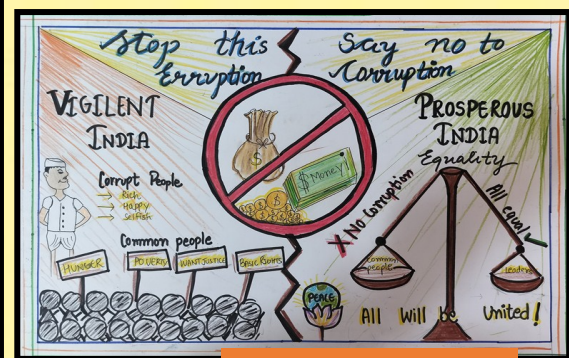 Stop this
Erruption
Say no to
Corruption
VIGILENT
INDIA
Corrupt People
→ Rich
→ Happy
→ Selfish
Common people
HUNGER
POVERTY
WANT JUSTICE
BASIC RIGHTS
$
$ Money!
PROSPEROUS
INDIA
Equality
X No Corruption
All equal
common
people
leaders
PEACE
All Will be United!